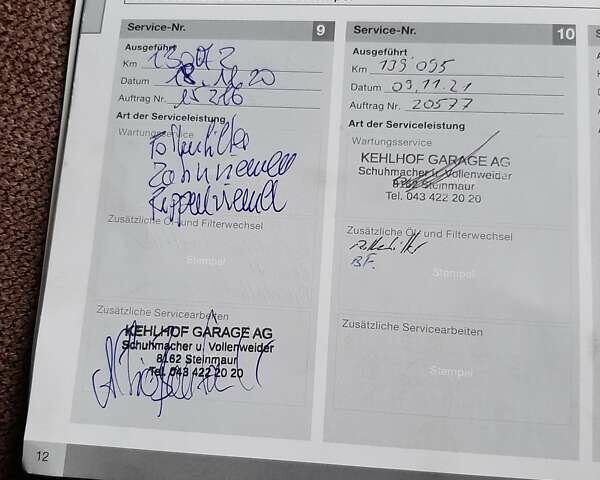 Service-Nr. 9
Ausgeführt
Km
Datum 18.11.20
Auftrag Nr. 15216
Art der Serviceleistung
Wartungsservice
Pollenfilter
Zahnriemen
Rippenriemen
Zusätzliche Öl- und Filterwechsel
Stempel
Zusätzliche Servicearbeiten
KEHLHOF GARAGE AG
Schuhmacher u. Vollenweider
8162 Steinmaur
Tel. 043 422 20 20
12
Service-Nr. 10
Ausgeführt
Km 139'095
Datum 09.11.21
Auftrag Nr. 20577
Art der Serviceleistung
Wartungsservice
KEHLHOF GARAGE AG
Schuhmacher u. Vollenweider
8162 Steinmaur
Tel. 043 422 20 20
Zusätzliche Öl- und Filterwechsel
Pollenfilter
BF.
Stempel
Zusätzliche Servicearbeiten
Stempel